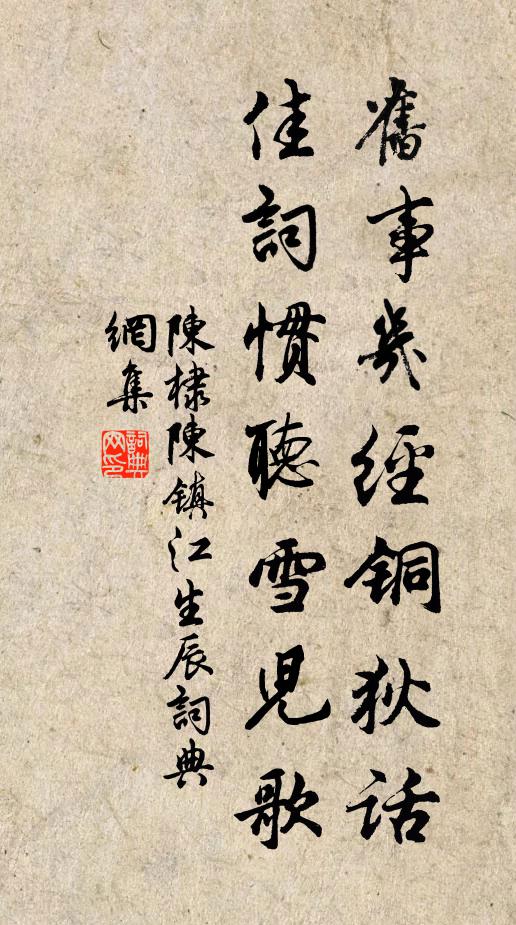 舊事幾經銅狄話
佳詞慣聽雪兒歌
陳棣陳鎮江生辰詞典
網集
詞典網印